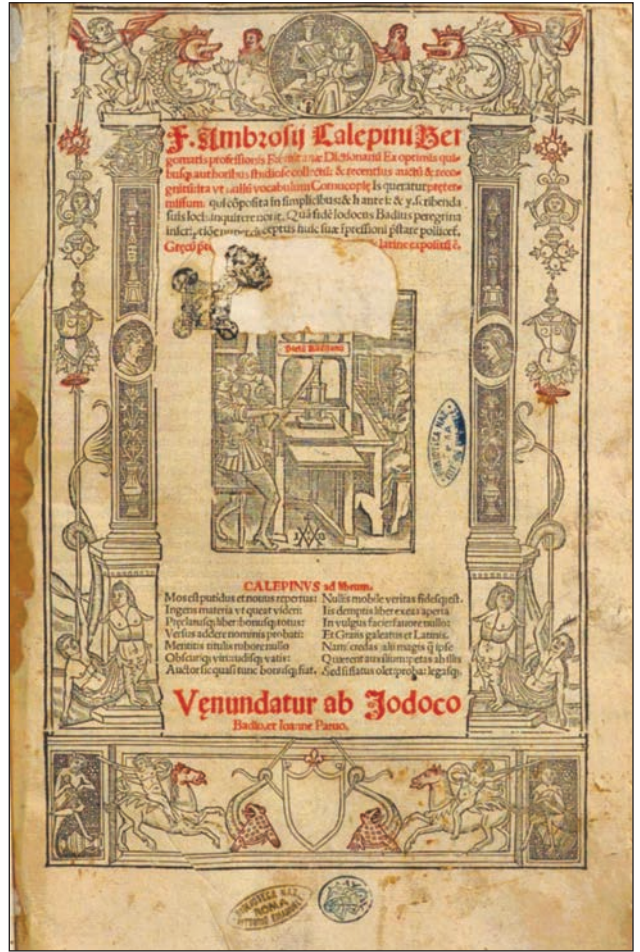 F. Ambrosij Calepini Ber
gomatis professionis Dictionariũ Ea optimis qui
busq; authoribus studiose collectũ: & recentius auctũ & reco-
gnitũ: ita vt nullũ vocabulum Cornucopię Is queratur pręter-
missum: qui cõposita in simplicibus: & h ante i: & y. scribenda
suis locis inquirere norit. Quã fidẽ Iodocus Badius peregrina
huic suæ
Gręcũ latine
Prelũ Ascẽsianũ
CALEPINVS ad librum.
Mos est putidus et nouus repertus:
Ingens materia vt queat videri:
Pręclarusq; liber: bonusq; totus:
Versus addere nominis probati:
Mentitis titulis rubore nullo
Obscuriq; viri: rudisq; vatis:
Auctor sic quasi tunc bonusq; fiat.
Nullis mobile veritas fidesq; est.
Iis demptis liber exeas aperta
In vulgus facie: fauore nullo:
Et Graiis galeatus et Latinis.
Nam credas alii magis q̃ ipse
Quærent auxilium: petas ab illis
Sed si flatus olet: proba: legasq;.
Vęnundatur ab Jodoco
Badio, et Ioanne Paruo.
BIBLIOTECA NAZ.
ROMA
VITTORIO EMANUELE